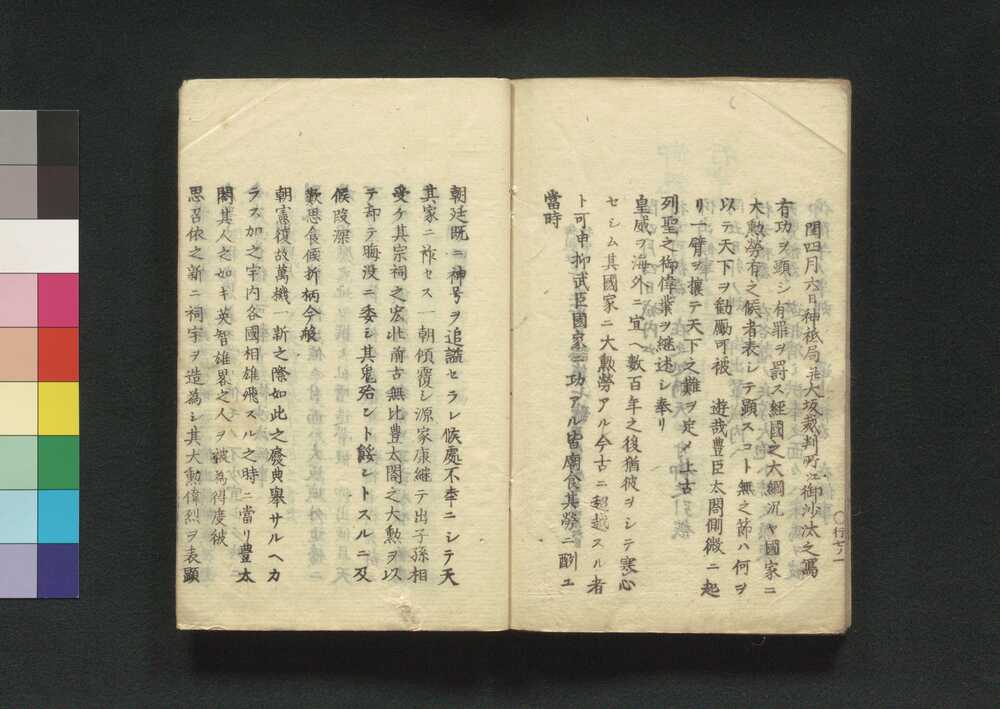 閏四月六日神祗局并大坂裁判所江御沙汰之寫
有功ヲ顕シ有罪ヲ罰ス経國之大綱況ヤ國家ニ
大勲勞有之候者表シテ顕スコト無之節ハ何ヲ
以テ天下ヲ勧厲可被　遊哉豊臣太閤側微ニ起
リ一臂ヲ攘テ天下之難ヲ定メ上古
列聖之御偉業ヲ継述シ奉リ
皇威ヲ海外ニ宣ヘ數百年之後猶彼ヲシテ寒心
セシム其國家ニ大勲勞アル今古ニ超越スル者
ト可申抑武臣國家ニ功アル皆廟食其勞ニ酬ユ
當時
朝廷既ニ神号ヲ追謚セラレ候處不幸ニシテ天
其家ニ祚セス一朝傾覆シ源家康継テ出子孫相
受ケ其宗祠之宏壮前古無比豊太閤之大勲ヲ以
テ却テ晦没ニ委シ其鬼殆ント餒ントスルニ及
候段深
歎思食候折柄今般
朝憲復故萬機一新之際如此之廢典擧サルヘカ
ラス加之宇内各國相雄飛スルノ時ニ當リ豊太
閤其人之如キ英智雄畧之人ヲ被為得度被
思召依之新ニ祠宇ヲ造為シ其大勲偉烈ヲ表顕